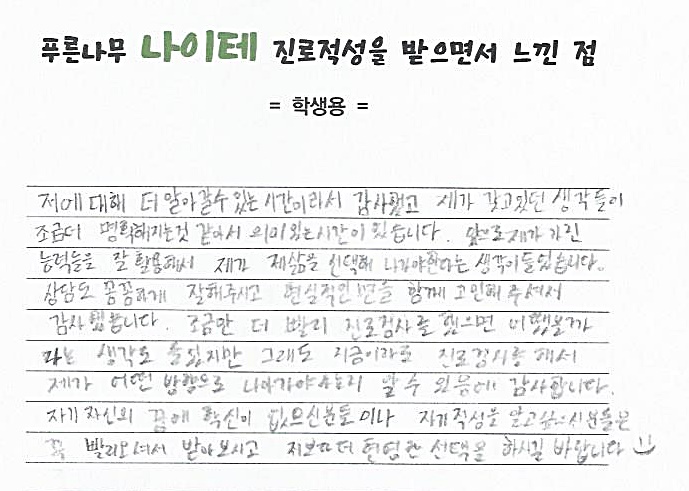 푸른나무 나이테 진로적성을 받으면서 느낀 점
= 학생용 =
저에 대해 더 알아갈수있는 시간이라서 감사했고 제가 갖고있던 생각들이
조금더 명확해지는것 같아서 의미있는시간이었습니다. 앞으로제가 가진
능력들을 잘 활용해서 제가 제삶을 선택해 나가야한다는 생각이들었습니다.
상담도 꼼꼼하게 잘해주시고 현실적인 함께 고민해 주셔서
감사했습니다. 조금만 더 빨리 진로검사를 했으면 어땠을까
라는 생각도 들었지만 그래도 지금이라도 진로검사를 해서
제가 어떤 방향으로 나아가야하는지 알 수 있음에 감사합니다.
자기 자신의 꿈에 확신이 없으신분들이나 자기적성을 알고싶으신분들은
꼭 빨리오셔서 받아보시고 저보다더 현명한 선택을 하시길 바랍니다